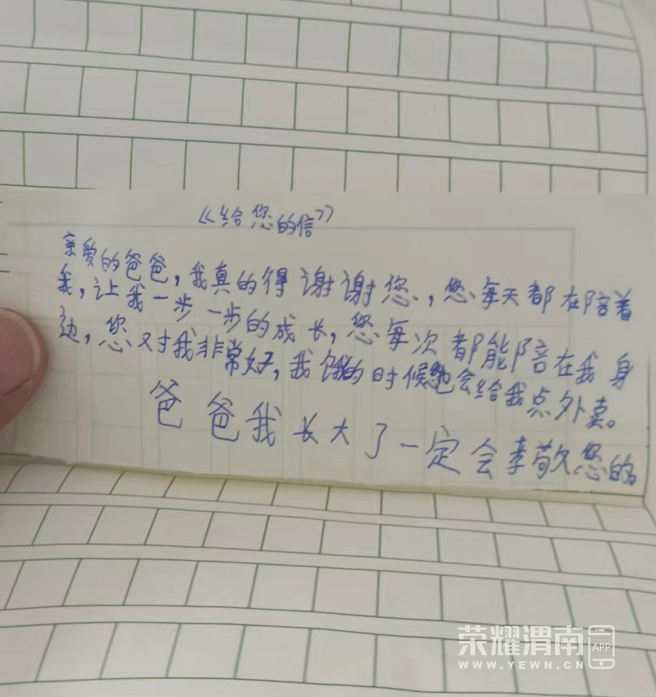 《给您的信》
亲爱的爸爸，我真的得谢谢您，您每天都在陪着
我，让我一步一步的成长，您每次都能陪在我身
边，您又对我非常好，我饿的时候您会给我点外卖。
爸爸我长大了一定会孝敬您的
荣耀渭南 APP
WWW.YEWN.CN